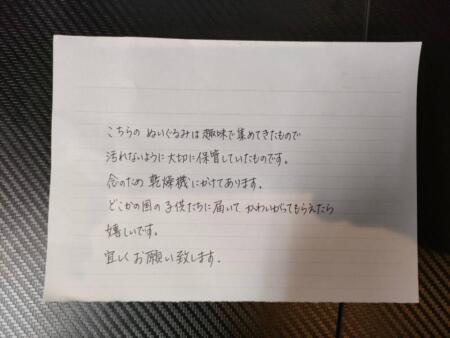 こちらの ぬいぐるみは趣味で集めてきたもので
汚れないように大切に保管していたものです。
念のため 乾燥機にかけてあります。
どこかの国の子供たちに届いて かわいがってもらえたら
嬉しいです。
宜しくお願い致します.